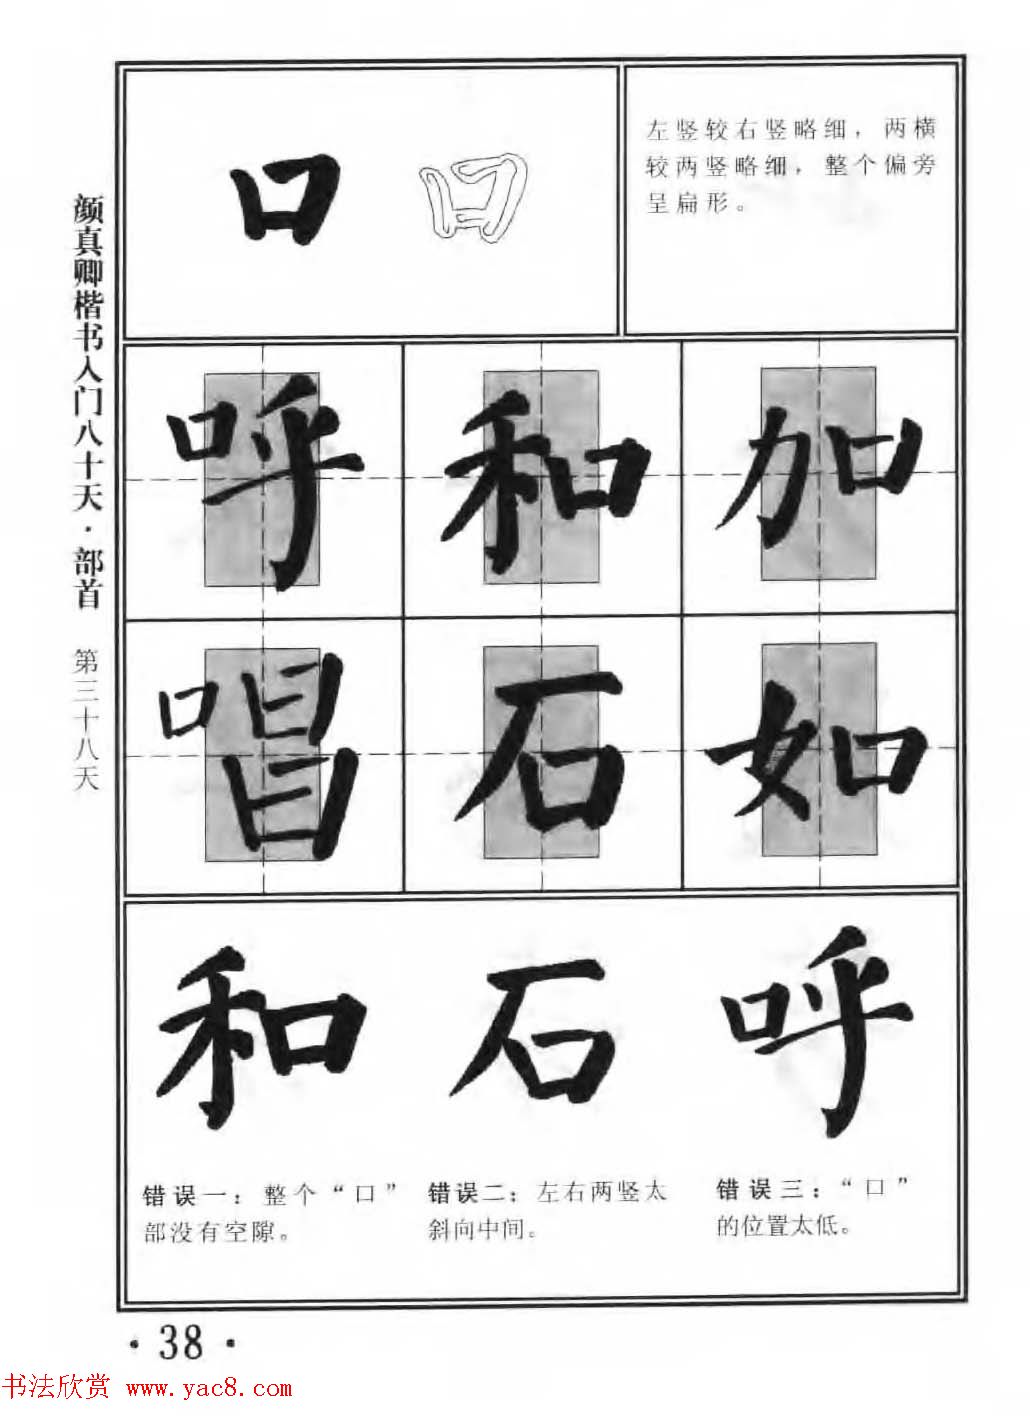 颜真卿楷书入门八十天·部首 第三十八天
口
左竖较右竖略细，两横
较两竖略细，整个偏旁
呈扁形。
呼 和 加
唱 石 如
和 石 呼
错误一：整个“口”
部没有空隙。
错误二：左右两竖太
斜向中间。
错误三：“口”
的位置太低。
·38·
书法欣赏 www.yac8.com